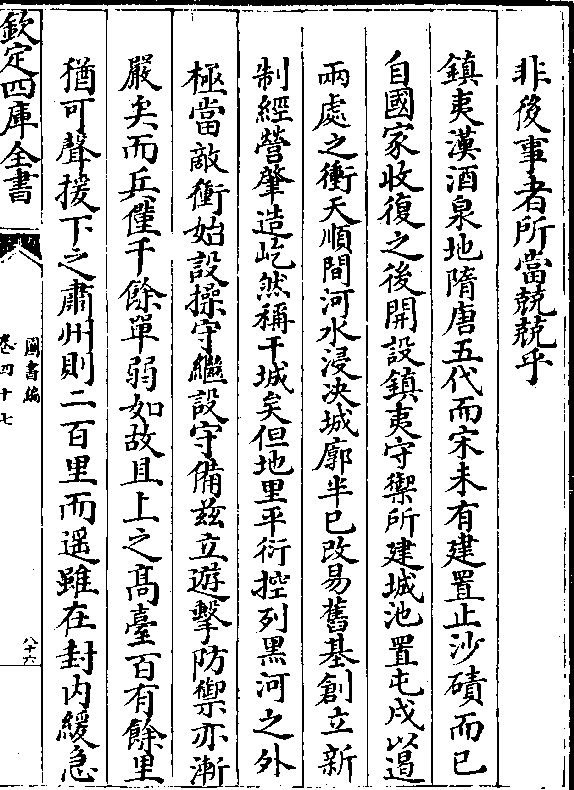 非後事者所當兢兢乎
鎮夷漢酒泉地隋唐五代而宋未有建置止沙磧而已
自國家收復之後開設鎮夷守禦所建城池置屯戍以遏
兩處之衝天順間河水浸決城廓半已改易舊基創立新
制經營肇造屹然稱干城矣但地里平衍控列黑河之外
極當敵衝始設操守繼設守備兹立遊擊防禦亦漸
嚴矣而兵僅千餘單弱如故且上之髙臺百有餘里
猶可聲援下之肅州則二百里而遥雖在封内緩急
欽定四庫全書
圖書編
卷四十七
八十六